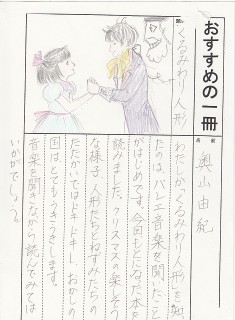 おすすめの一冊
くるみわり人形
名前 奥山由紀
わたしがくるみわり人形を知っ
たのは、バレエ音楽を聞いたこと
がはじめです。今回もとになった本を
読みました。クリスマスの楽しそう
な様子、人形たちとねずみたちの
たたかいではドキドキし、おかしの
国はとてもうきうきします。
音楽を聞きながら読んでみては
いかがでしょう。